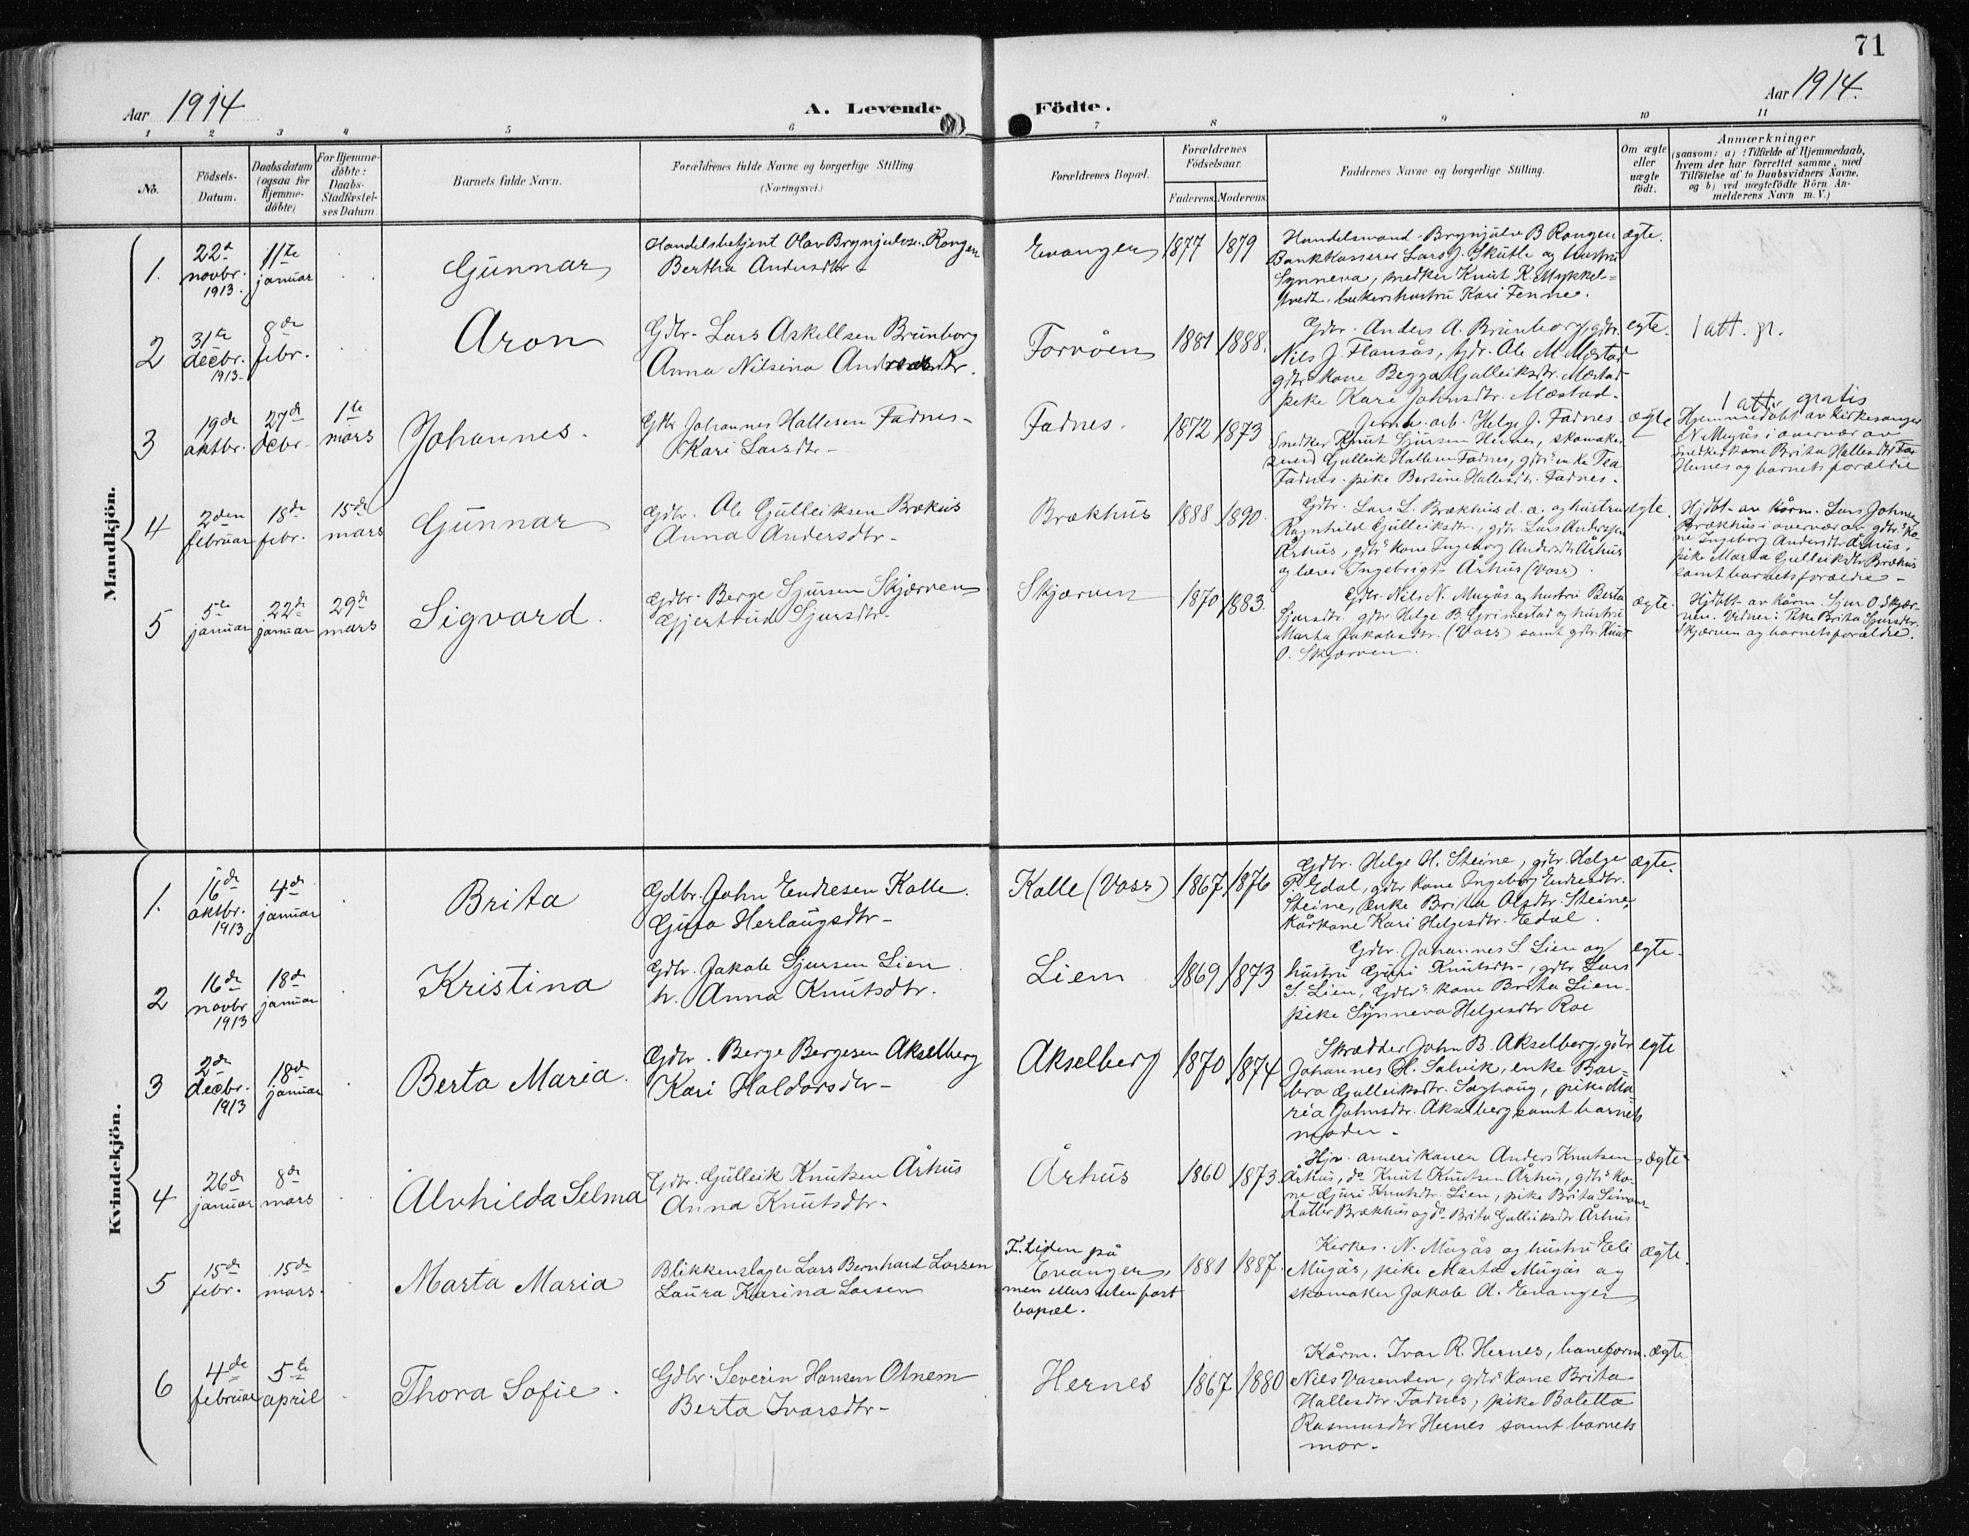 71
Aar 1914
A. Levende Födte.
Aar 1914.
1 2 3 4 5 6 7 8 9 10 11
No.
Födsels-Datum.
Daabsdatum (ogsaa for Hjemme-döbte)
For Hjemme-döbte: Daabs-Stadfæstel-ses Datum.
Barnets fulde Navn.
Forældrenes fulde Navne og borgerlige Stilling.
(Næringsvei.)
Forældrenes Bopæl.
Forældrenes Födselsaar.
Faderens. Moderens.
Faddernes Navne og borgerlige Stilling.
Om ægte eller uægte födt.
Anmærkninger
(saasom: a) i Tilfælde af Hjemmedaab,
hvem der har forrettet samme, med
Tilföielse af to Daabsvidners Navne,
og b) ved uægtefödte Börn An-
melderens Navn m. V.)
Mandkjön.
1. 22de novbr. 1913. 11te januar
Gunnar
Handelsbetjent Olav Brynjulvsen Rongen
Bertha Andersdtr
Evanger 1877 1879
Handelsmand Brynjulv B Rongen
Bankkasserer Lars J. Skutle og hustru
Synneva, snedker Knut K. Mykkel-
tvedt. bakershustru Kari Fenne.
ægte.
2 31te decbr. 1913. 8de febr.
Aron
Gdbr. Lars Askellsen Brunborg
Anna Nilsina
Forvöen 1881 1888.
Gdbr. Anders A. Brunborg, gdbr.
Nils J. Flansås, gdr. Ole M. Mæstad
gdbr kone Begga Gulleiksdtr. Mæstad
pike Kari Johnsdtr. Mæstad.
egte.
1 att. gr.
3 19de oktbr. 27de decbr. 1te mars
Johannes.
Gdbr Johannes Hallesen Fadnes
Kari Larsdtr
Fadnes. 1872 1873
Jernb. arb. Helge J. Fadnes
Snedker Knut Sjursen Hernes, skomaker
svend Gulleik Hallesen Fadnes, gdbrs enke Tea
Fadnes. pike Bertine Hallesdtr. Fadnes.
ægte
1 att. gratis
Hjemmedöbt av kirkesanger
N. Mugås i overvær av
snedkerkone Brita Hallesdtr
Hernes og barnets forældre
4 2den februar 18de febr. 15de mars
Gunnar
Gdbr. Ole Gulleiksen Brekus
Anna Andersdtr.
Brækhus 1888 1890.
Gdbr. Lars L. Brækhus d. a. og hustru
Ragnhild Gulleiksdtr., gdbr. Lars Andersen
Århus, gdbrs kone Ingeborg Andersdtr. Århus
og lærer Ingebrigt Århus (Voss).
egte.
Hjdöbt av kårm. Lars Johns.
Brækhus i overvær av gdbrs ko-
ne Ingeborg Andersdtr Århus,
pike Marta Gulleiksdtr Brækus
samt barnets forældre
5 5te januar 22de januar 29de mars
Sigvard.
Gdbr. Berge Sjursen Skjerven
Gjertrud Sjursdtr.
Skjerven 1870 1883.
Gdbr. Nils N. Mugås og hustru Berta
Sjursdtr. gdbr. Helge B. Grimestad og hustru
Marta Jakobsdtr. (Voss) samt gdbr. Knut
O. Skjerven.
ægte.
Hjdöbt av kårm. Sjur O. Skjær-
ven. Vidner: Pike Brita Sjursdtr.
Skjerven og barnets forældre.
Kvindekjön.
1. 16de oktbr. 1913 4de januar
Brita
Gdbr. John Endresen Kolle.
Guro Herlaugsdtr
Kolle (Voss) 1867 1876
Gdbr. Helge H. Steine, gdbr. Helge
P. Edal, gdbr kone Ingeborg Endresdtr.
Steine, enke Brita Olsdtr. Steine,
kårkone Kari Helgesdtr. Edal.
ægte.
2 16de novbr 1913 18de januar
Kristina
Gdbr. Jakob Sjursen Lien
h. Anna Knutsdtr.
Liem 1869 1873
Gdbr. Johannes S. Lien og
hustru Guri Knutsdtr, gdbr Lars
S. Lien, gdbrs kone Brita Lien.
pike Synneva Helgesdtr Roe
egte.
3 2de decbr. 1913 18de januar
Berta Maria.
Gdbr. Berge Bergesen Akselberg
Kari Haldorsdtr
Akselberg 1870 1874
Skrædder John B. Akselberg, gdbr
Johannes H. Salvik, enke Bar-
bro Gulleiksdtr. Saghaug, pike Ma-
ria Johnsdtr. Akselberg samt barnets
moder.
egte
4 26de januar 8de mars
Alvhilda Selma
Gdbr. Gulleik Knutsen Århus
Anna Knutsdtr.
Århus 1860 1873.
Hjv. amerikaner Anders Knutsen
Århus, do Knut Knutsen Århus, gdbrs ko-
ne Guri Knutsdtr. Lien, pike Brita Simons-
datter Brækhus og do Brita Gulleiksdtr Århus
ægte
5 15de febr. 15de mars.
Marta Maria
Blikkenslager Lars Bernhard Larsen
Laura Karina Larsen
F. tiden på
Evanger,
men ellers uten fast
bopæl.
1881 1887.
Kirkes. N. Mugås og hustru Eli
Mugås, pike Marta Mugås og
skomaker Jakob A. Evanger
ægte.
6 4de februar 5te april
Thora Sofie.
Gdbr. Severin Hansen Otnem
Berta Ivarsdtr
Hernes 1867 1880
Kårm. Ivar R. Hernes, baneform.
Nils Væsenden, gdbrs kone Brita
Hallesdtr Fadnes, pike Boletta
Rasmusdtr Hernes samt barnets
mor.
ægte